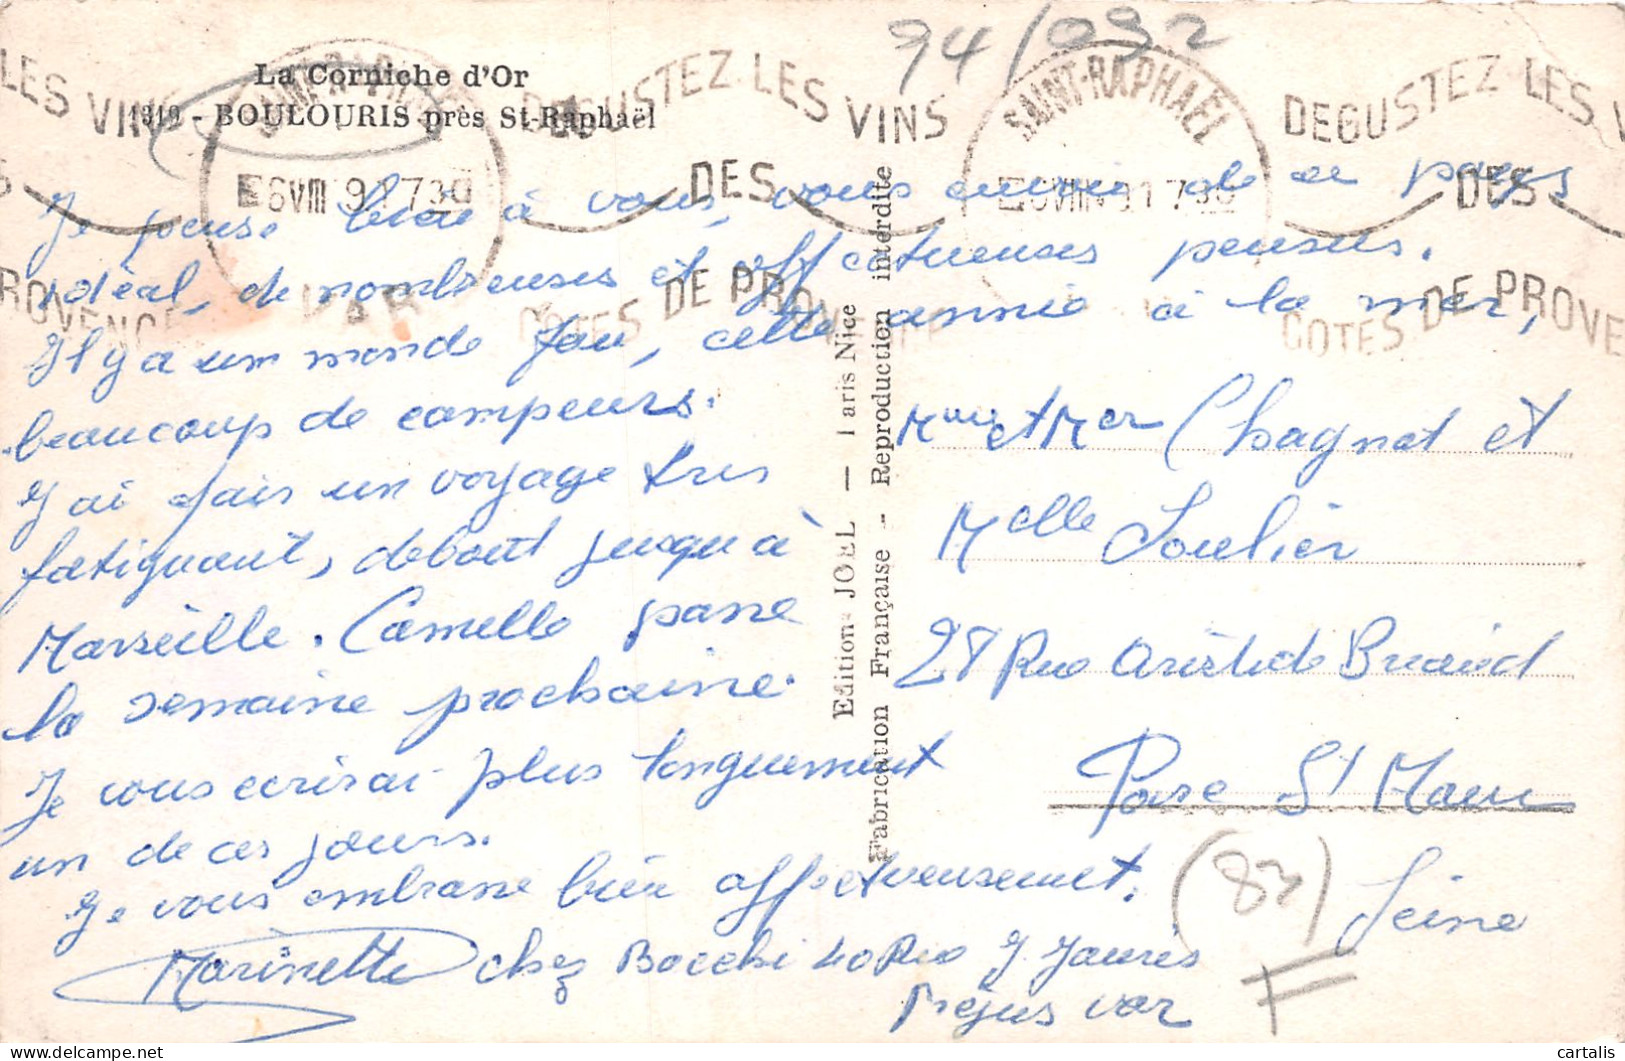 94/092
La Corniche d'Or
1319 - BOULOURIS près St-Raphaël
DEGUSTEZ LES VINS
DES
COTES DE PROVENCE
SAINT-RAPHAËL
VAR
Je pense bien à vous, vous envoie de ce pays
idéal, de nombreuses et affectueuses pensées.
Il y a un monde fou, cette année à la mer,
beaucoup de campeurs.
J'ai fais un voyage très
fatiguant, debout jusqu'à
Marseille. Camille passe
la semaine prochaine.
Je vous écrirai plus longuement
un de ces jours.
Je vous embrasse bien affectueusement.
Marinette chez Bocchi 40 Rue J. Jaurès
Fréjus Var
Edition JOEL — Paris Nice
Fabrication Française - Reproduction interdite
Mme et Mer Chagnat et
Melle Soulier
28 Rue Aristide Briand
Parc St Maur
Seine
(83)
cartalis